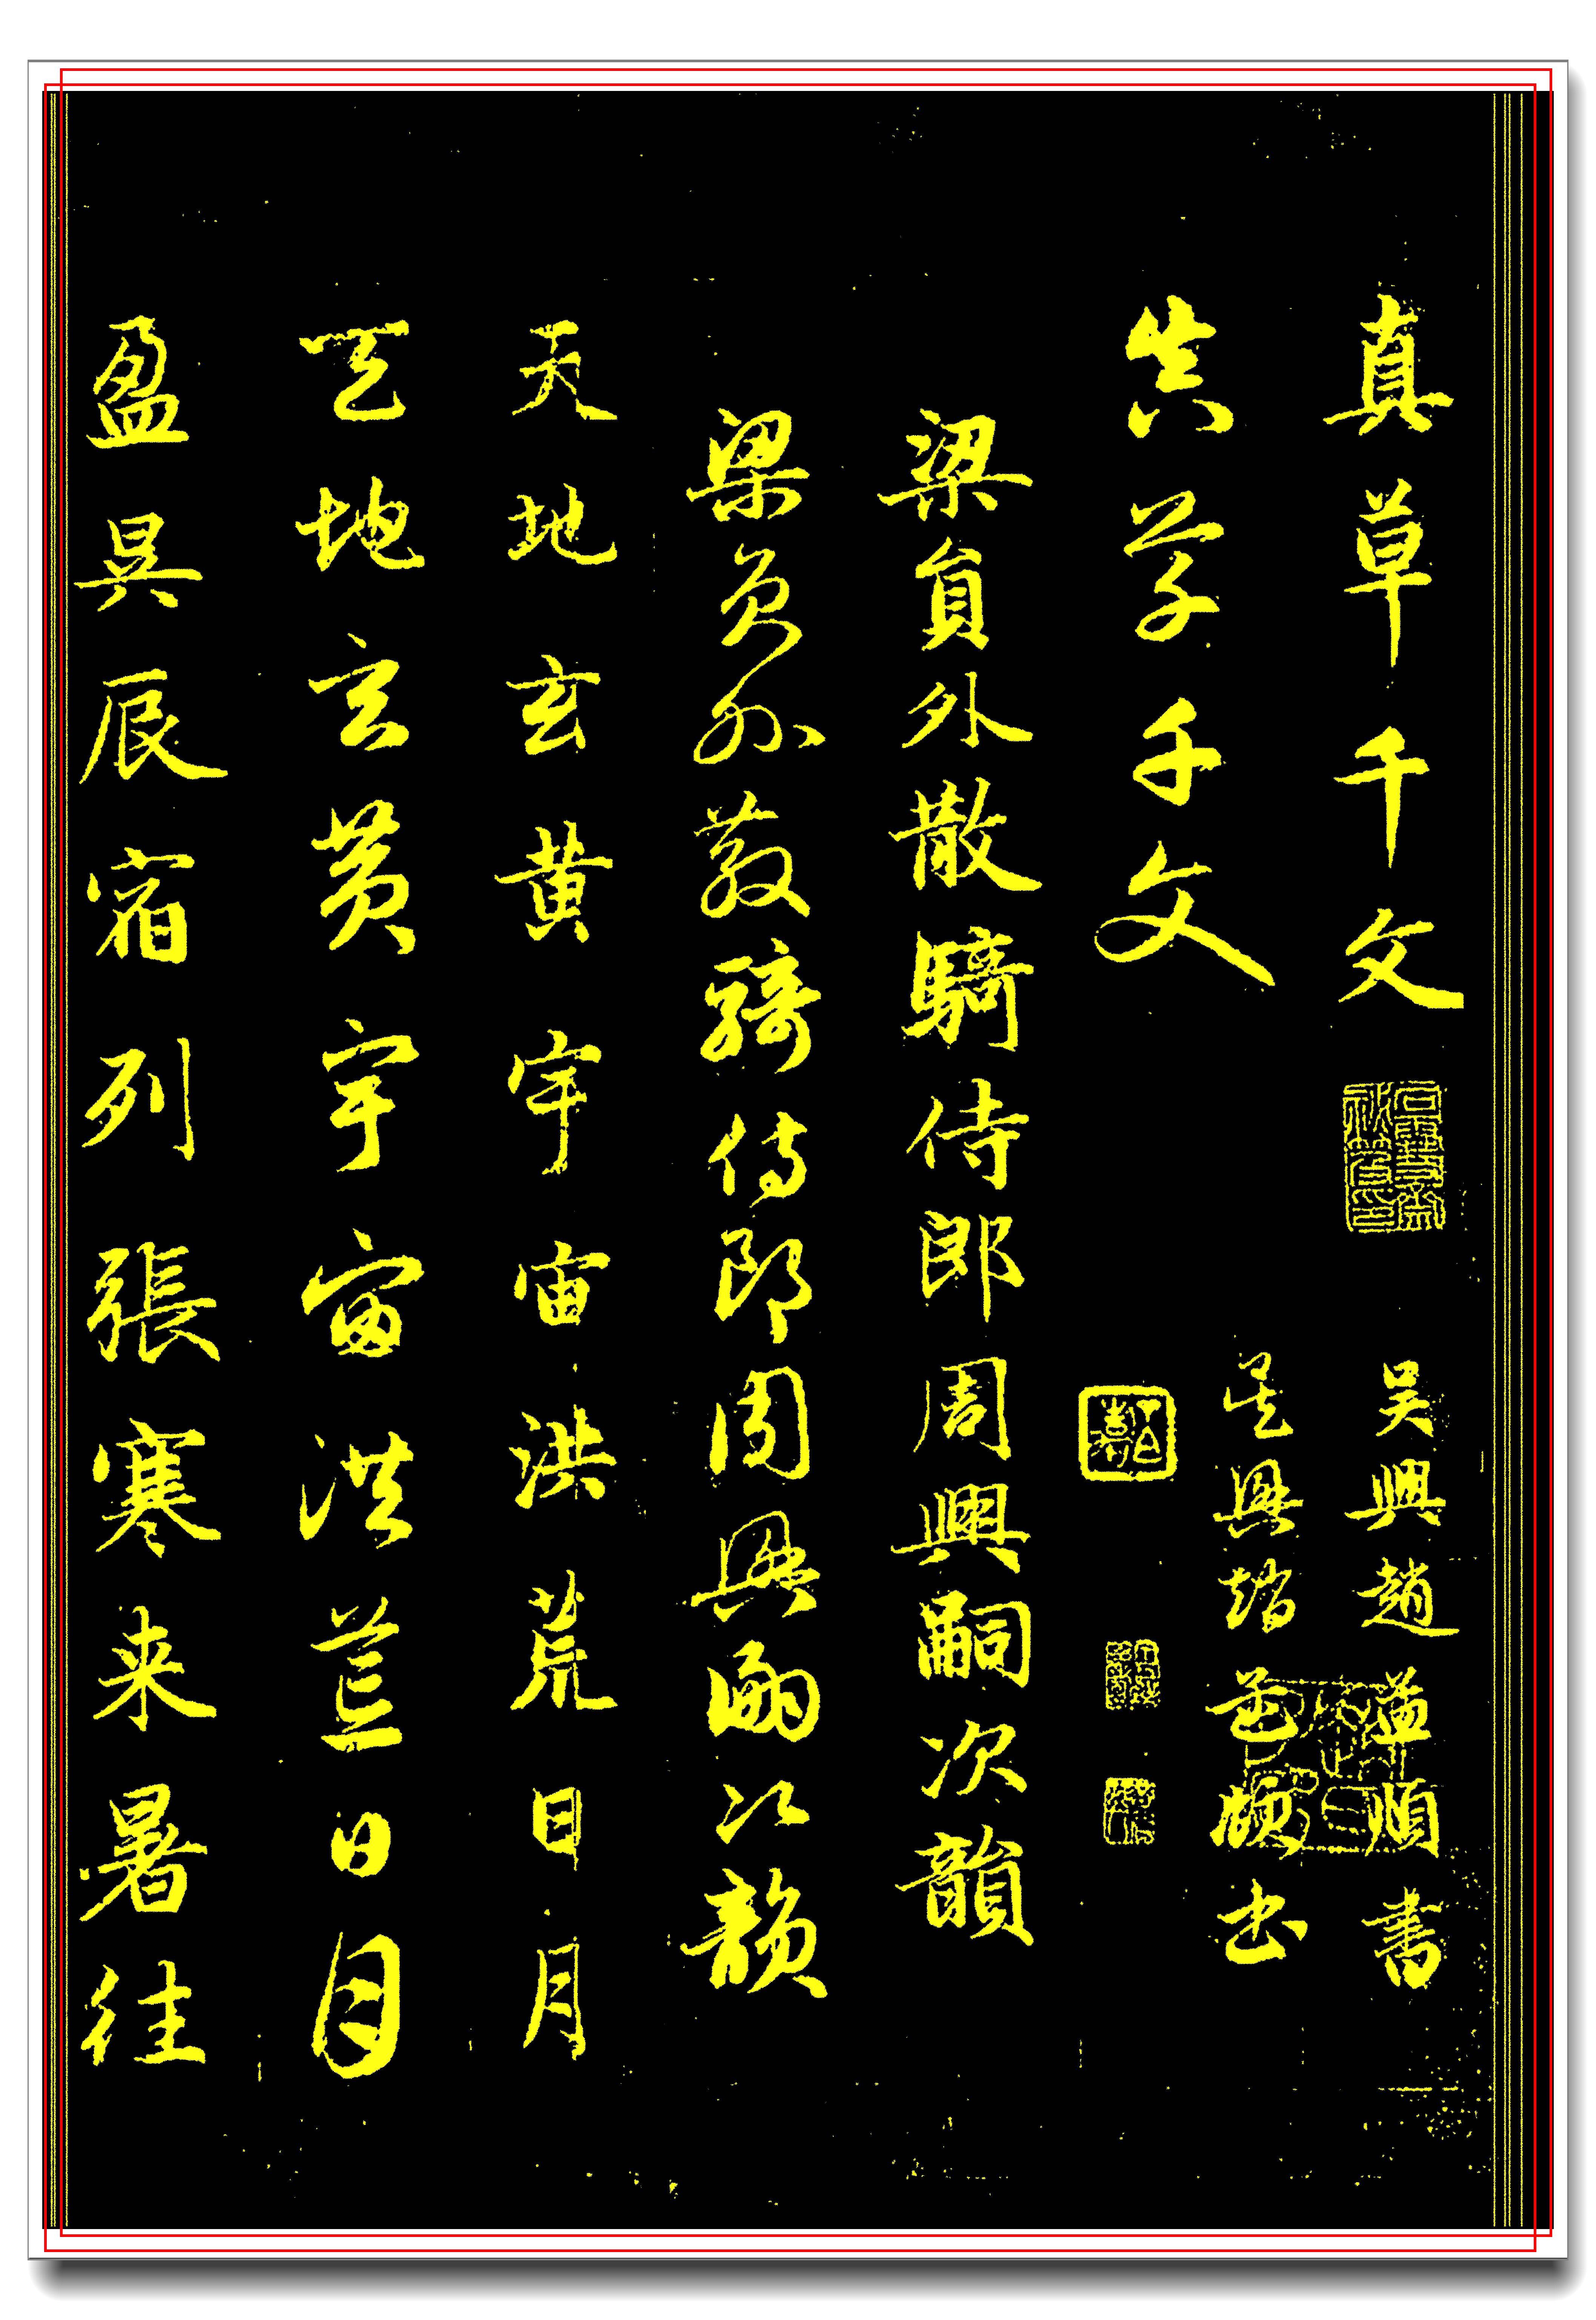 真草千文
吴興趙孟頫書
吴興趙孟頫書
真草千文
梁員外散騎侍郎周興嗣次韻
梁員外散騎侍郎周興嗣次韻
天地玄黄宇宙洪荒日月
天地玄黄宇宙洪荒日月
盈昃辰宿列張寒来暑往